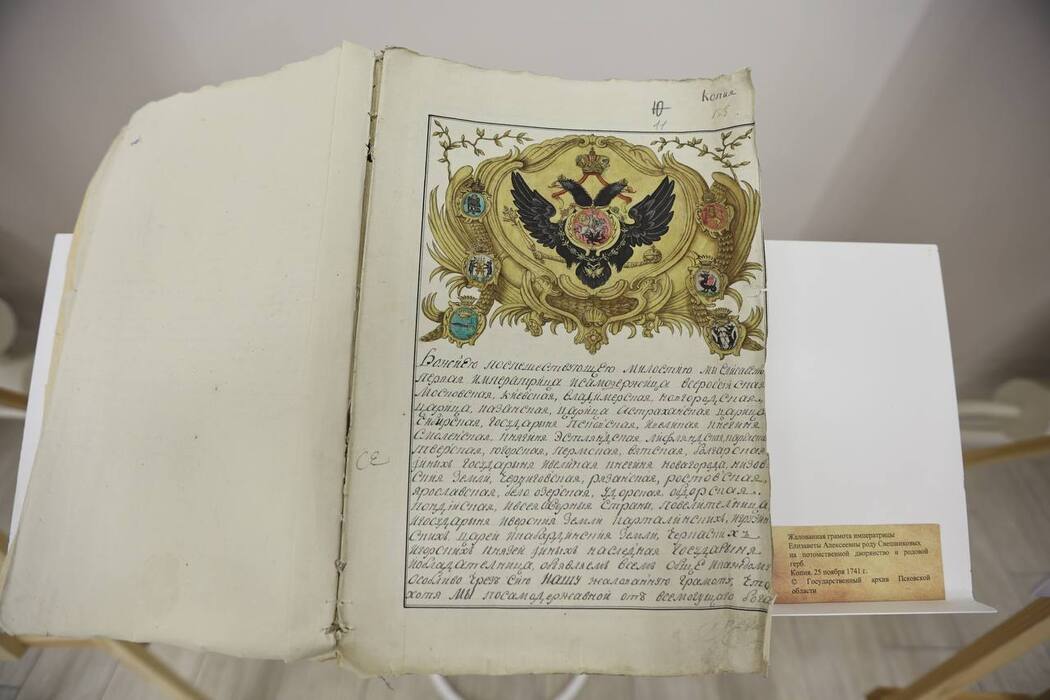 Копия
11
СЕ
Божиею поспешествующею милостию мы Елисаветъ
первая императрица исамодержица всеросийская
Московская, киевская, владимерская, новгородская,
царица, казанская, царица астраханская царица
Сибирская, государыня псковская, ивеликая княгиня
Смоленская, княгиня эстляндская, лифляндская, корелская
тверская, югорская, пермская, вятская, болгарская
ииныхъ государыня ивеликая княгиня новагорода, низов
ския земли, черниговская, рязанская, ростовская,
ярославская, бело озерская, удорская, обдорская,
кондийская, ивсея северныя страны, повелителница
игосударыня иверския земли карталинскихъ, игрузин
скихъ царей икабардинския земли, черкаскихъ
игорскихъ князей ииныхъ наследная государиня
иобладателница, объявляемъ всемъ обще икаждому
особливо чрезъ сию нашу жалованную грамоту, что
хотя мы посамодержавной отъ всемогущаго бога
Жалованная грамота императрицы
Елизаветы Алексеевны роду Свешниковых
на потомственной дворянство и родовой
герб.
Копия. 25 ноября 1741 г.
© Государственный архив Псковской
области